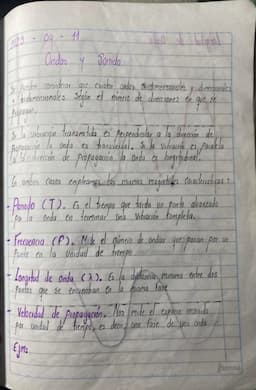 2023 - 09 - 11
Ondas y Sonido
Se pueden considerar que existen ondas unidimensionales y
tridimensionales. Según el número de direcciones en que se
propagan.
Si la vibración Transmitida es Perpendicular a la dirección de
Propagación la onda es transversal. Si la vibración es Paralela
a la dirección de Propagación la onda es longitudinal.
En ambos casos emplearemos las mismas magnitudes características:
- Periodo (T). Es el tiempo que tarda un punto alcanzado
por la onda en terminar una vibración completa.
- Frecuencia (F). Mide el número de ondas que pasan por un
Punto en la Unidad de tiempo
- Longitud de onda (λ). Es la distancia mínima entre dos
Puntos que se encuentran en la misma fase
- Velocidad de propagación. Nos mide el espacio recorrido
por unidad de tiempo, es decir, una fase de una onda.
Ejm: